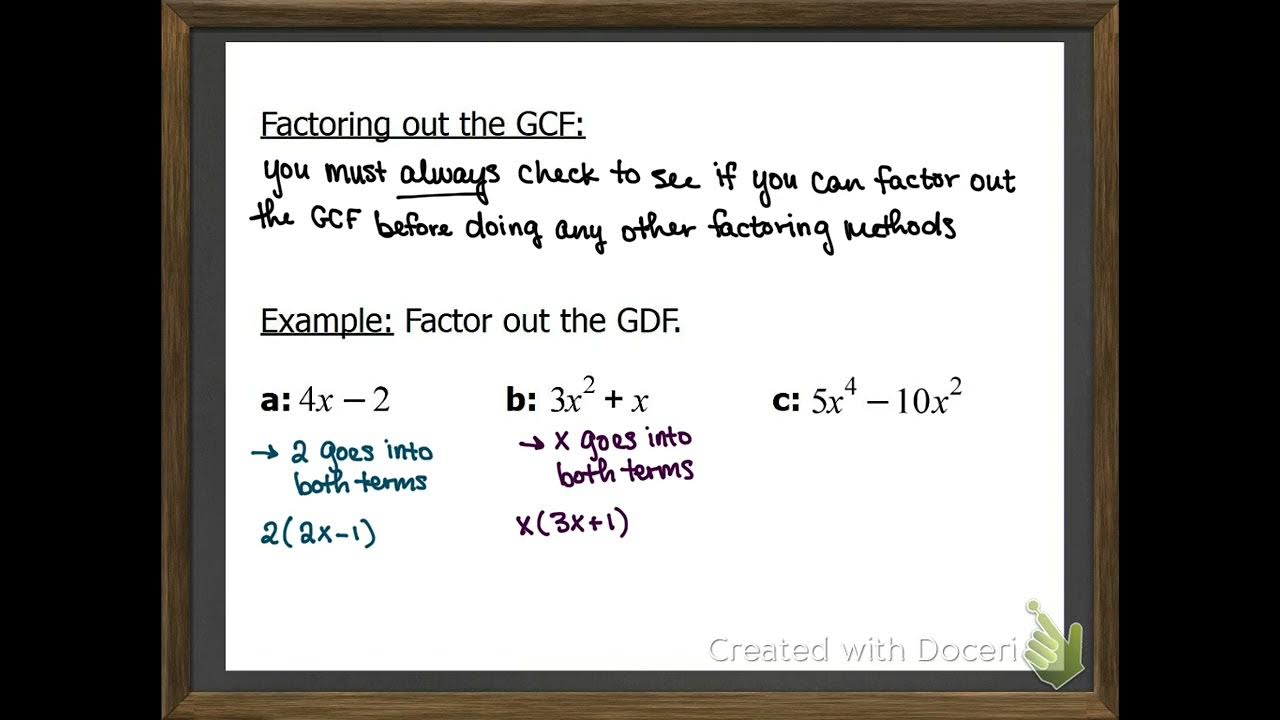 Factoring out the GCF:
you must always check to see if you can factor out
the GCF before doing any other factoring methods
Example: Factor out the GDF.
a: 4x − 2
→ 2 goes into
both terms
2(2x−1)
b: 3x² + x
→ x goes into
both terms
x(3x+1)
c: 5x⁴ − 10x²
Created with Doceri